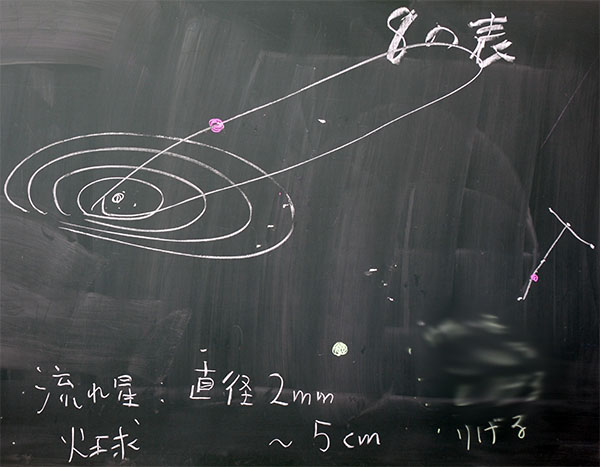 8の表
流れ星：直径2mm
火球 ～5cm
りげる